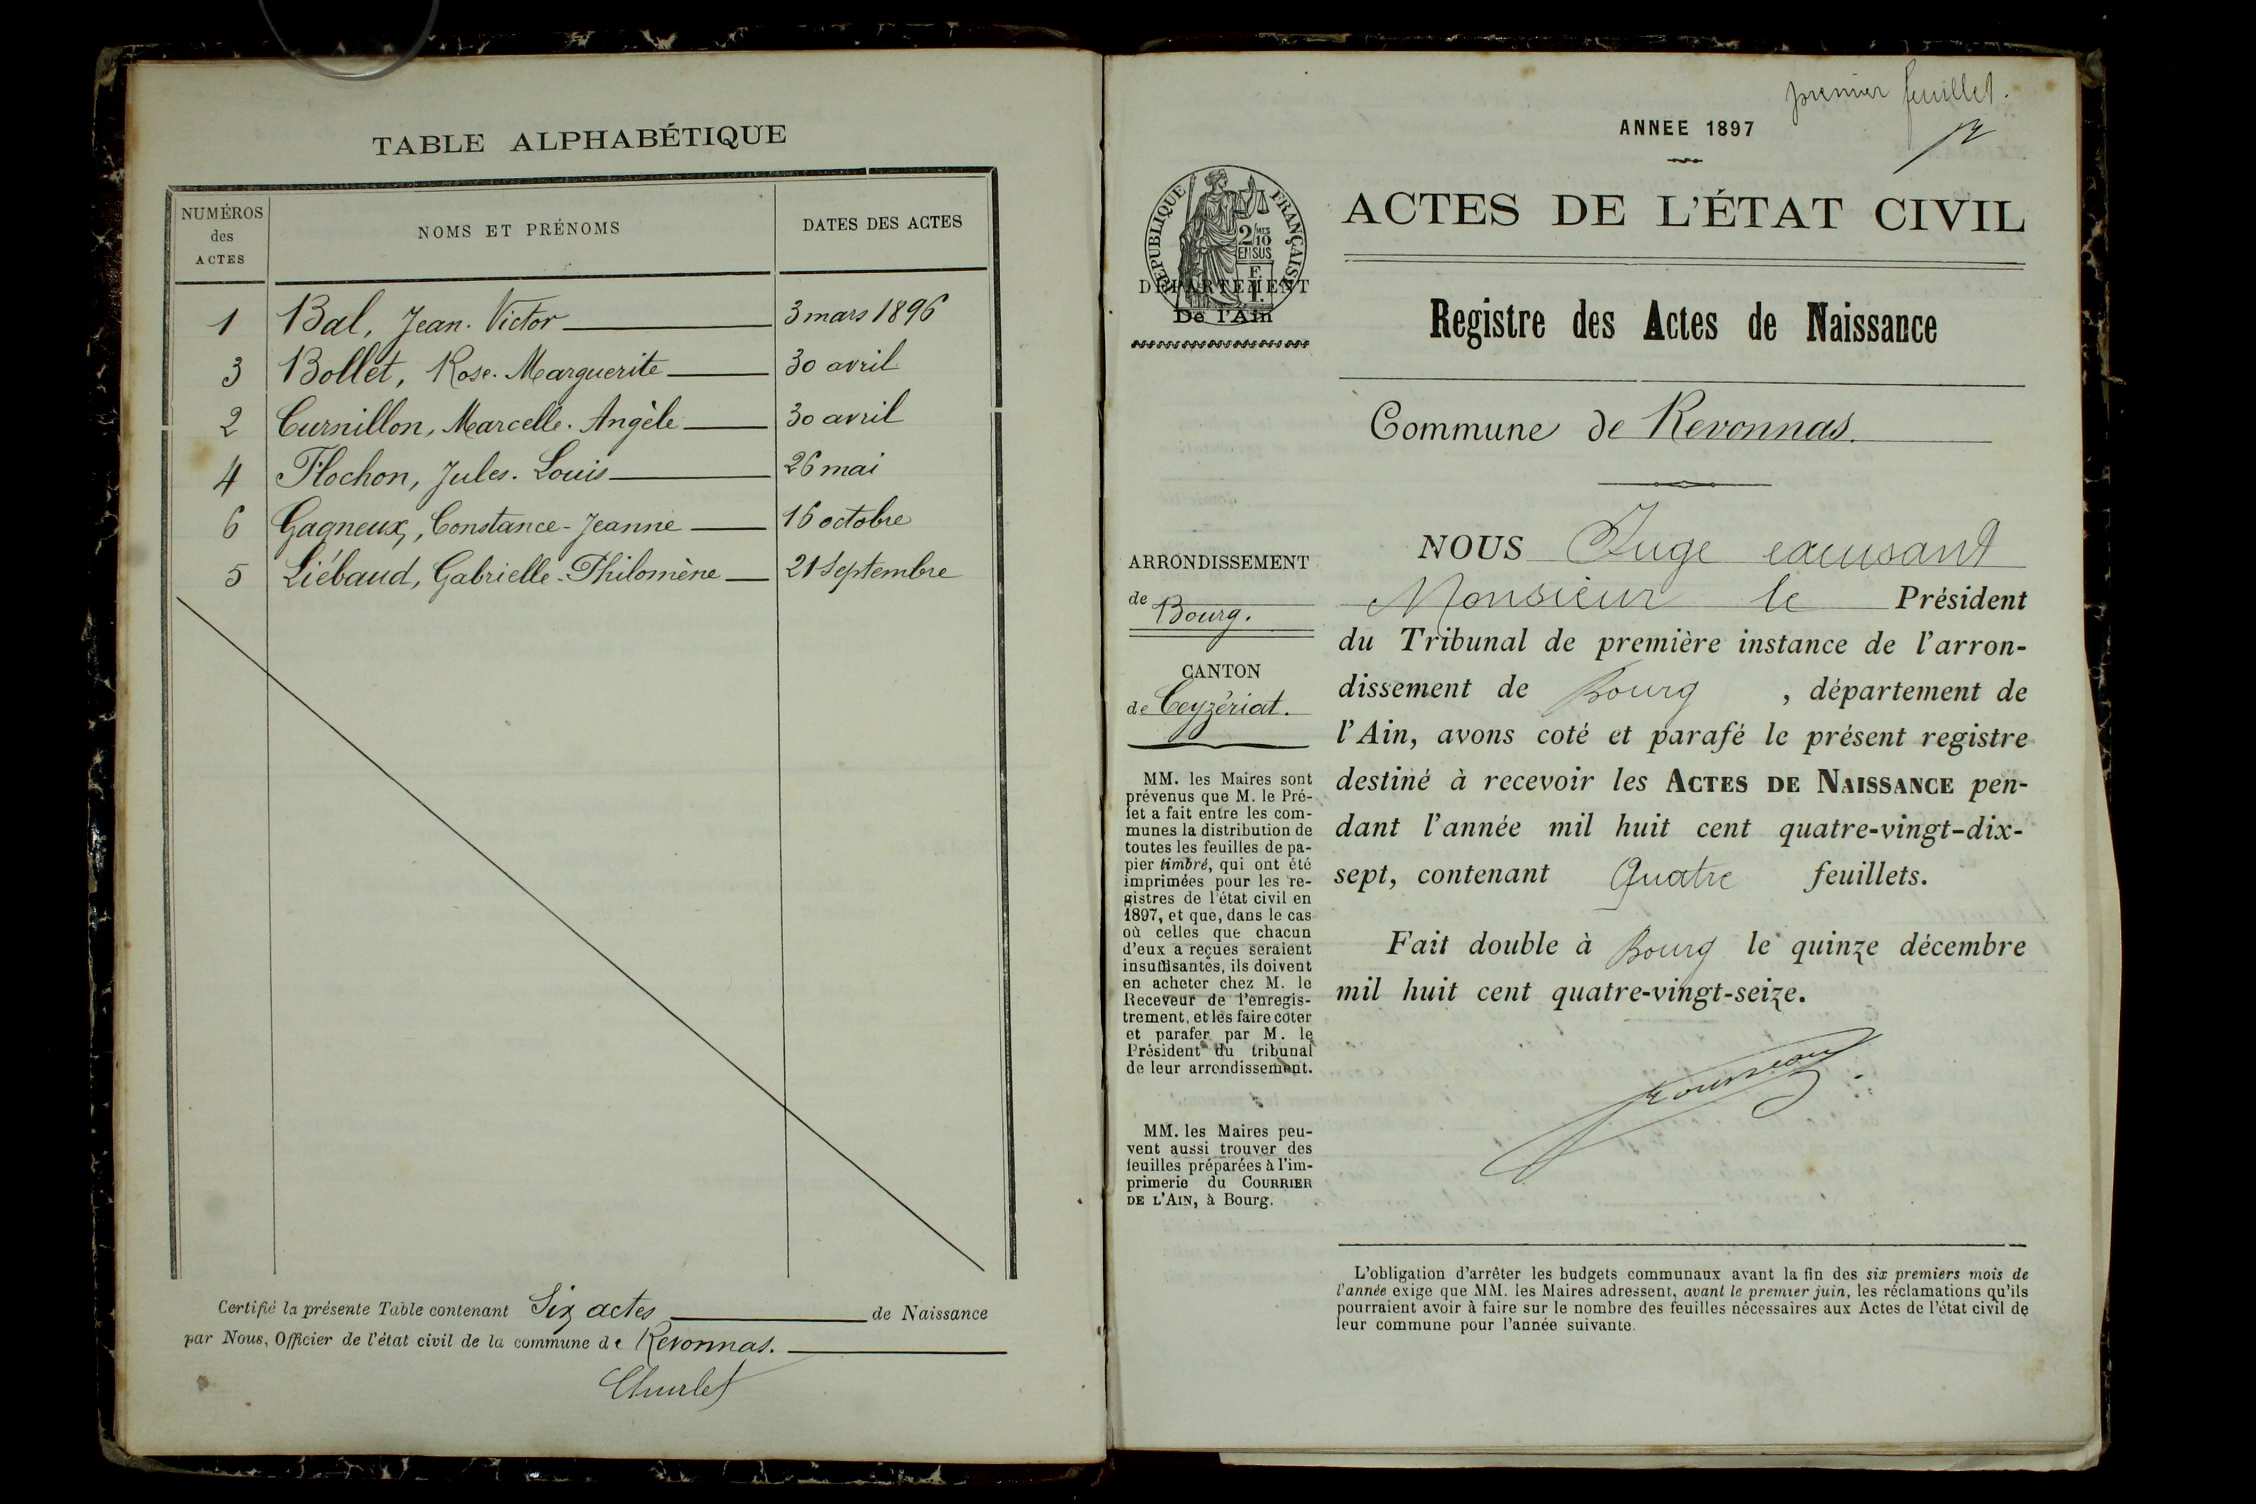 TABLE ALPHABÉTIQUE
NUMÉROS
des
ACTES
NOMS ET PRÉNOMS
DATES DES ACTES
1 Bal, Jean. Victor 3 mars 1896
3 Bollet, Rose. Marguerite 30 avril
2 Curnillon, Marcelle. Angèle 30 avril
4 Flochon, Jules. Louis 26 mai
6 Gagneux, Constance-Jeanne 16 octobre
5 Liébaud, Gabrielle-Philomène 21 Septembre
Certifié la présente Table contenant Six actes de Naissance
par Nous, Officier de l'état civil de la commune de Revonnas.
premier feuillet.
ANNEE 1897
RÉPUBLIQUE FRANÇAISE
2/10
EN SUS
DÉPARTEMENT
De l'Ain
ACTES DE L'ÉTAT CIVIL
Registre des Actes de Naissance
Commune de Revonnas.
ARRONDISSEMENT
de Bourg.
CANTON
de Ceyzériat.
MM. les Maires sont
prévenus que M. le Pré-
fet a fait entre les com-
munes la distribution de
toutes les feuilles de pa-
pier timbré, qui ont été
imprimées pour les re-
gistres de l'état civil en
1897, et que, dans le cas
où celles que chacun
d'eux a reçues seraient
insuffisantes, ils doivent
en acheter chez M. le
Receveur de l'enregis-
trement, et les faire coter
et parafer par M. le
Président du tribunal
de leur arrondissement.
MM. les Maires peu-
vent aussi trouver des
feuilles préparées à l'im-
primerie du COURRIER
DE L'AIN, à Bourg.
NOUS Juge excusant
Monsieur le Président
du Tribunal de première instance de l'arron-
dissement de Bourg, département de
l'Ain, avons coté et parafé le présent registre
destiné à recevoir les ACTES DE NAISSANCE pen-
dant l'année mil huit cent quatre-vingt-dix-
sept, contenant Quatre feuillets.
Fait double à Bourg le quinze décembre
mil huit cent quatre-vingt-seize.
L'obligation d'arrêter les budgets communaux avant la fin des six premiers mois de
l'année exige que MM. les Maires adressent, avant le premier juin, les réclamations qu'ils
pourraient avoir à faire sur le nombre des feuilles nécessaires aux Actes de l'état civil de
leur commune pour l'année suivante.